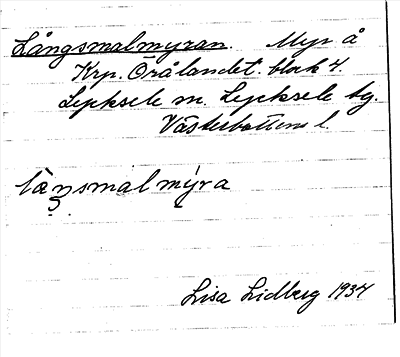 Långsmalmyran. Myr å
Krp. Örålandet. block 4.
Lycksele sn. Lycksele tg.
Västerbottens l.
låŋsmalmýra
Lisa Lidberg 1934